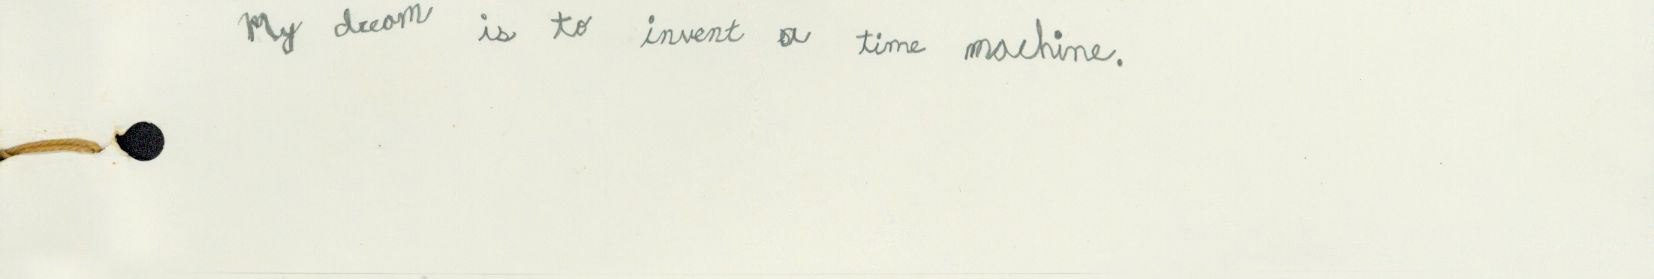 My dream is to invent a time machine.